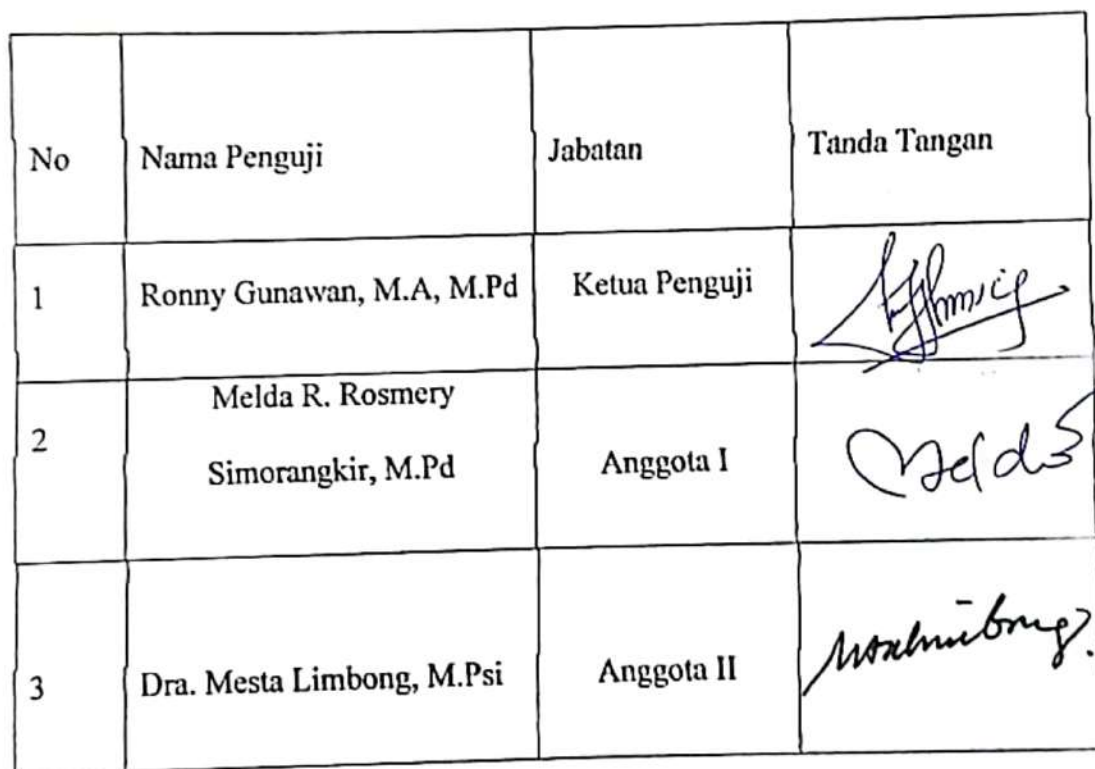 No Nama Penguji Jabatan Tanda Tangan
1 Ronny Gunawan, M.A, M.Pd Ketua Penguji
Melda R. Rosmery
2 Simorangkir, M.Pd Anggota I Melda
3 Dra. Mesta Limbong, M.Psi Anggota II